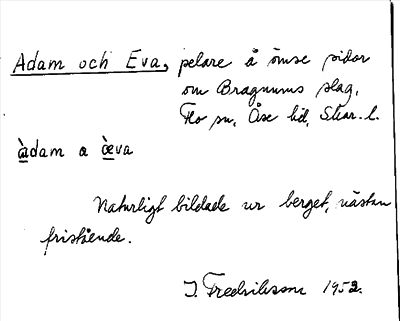 Adam och Eva, pelare å ömse sidor
om Bragnums slag,
Flo sn, Åse hd, Skar. l.
àdam a æ̀va
Naturligt bildade ur berget, nästan
fristående.
J. Fredriksson 1952.